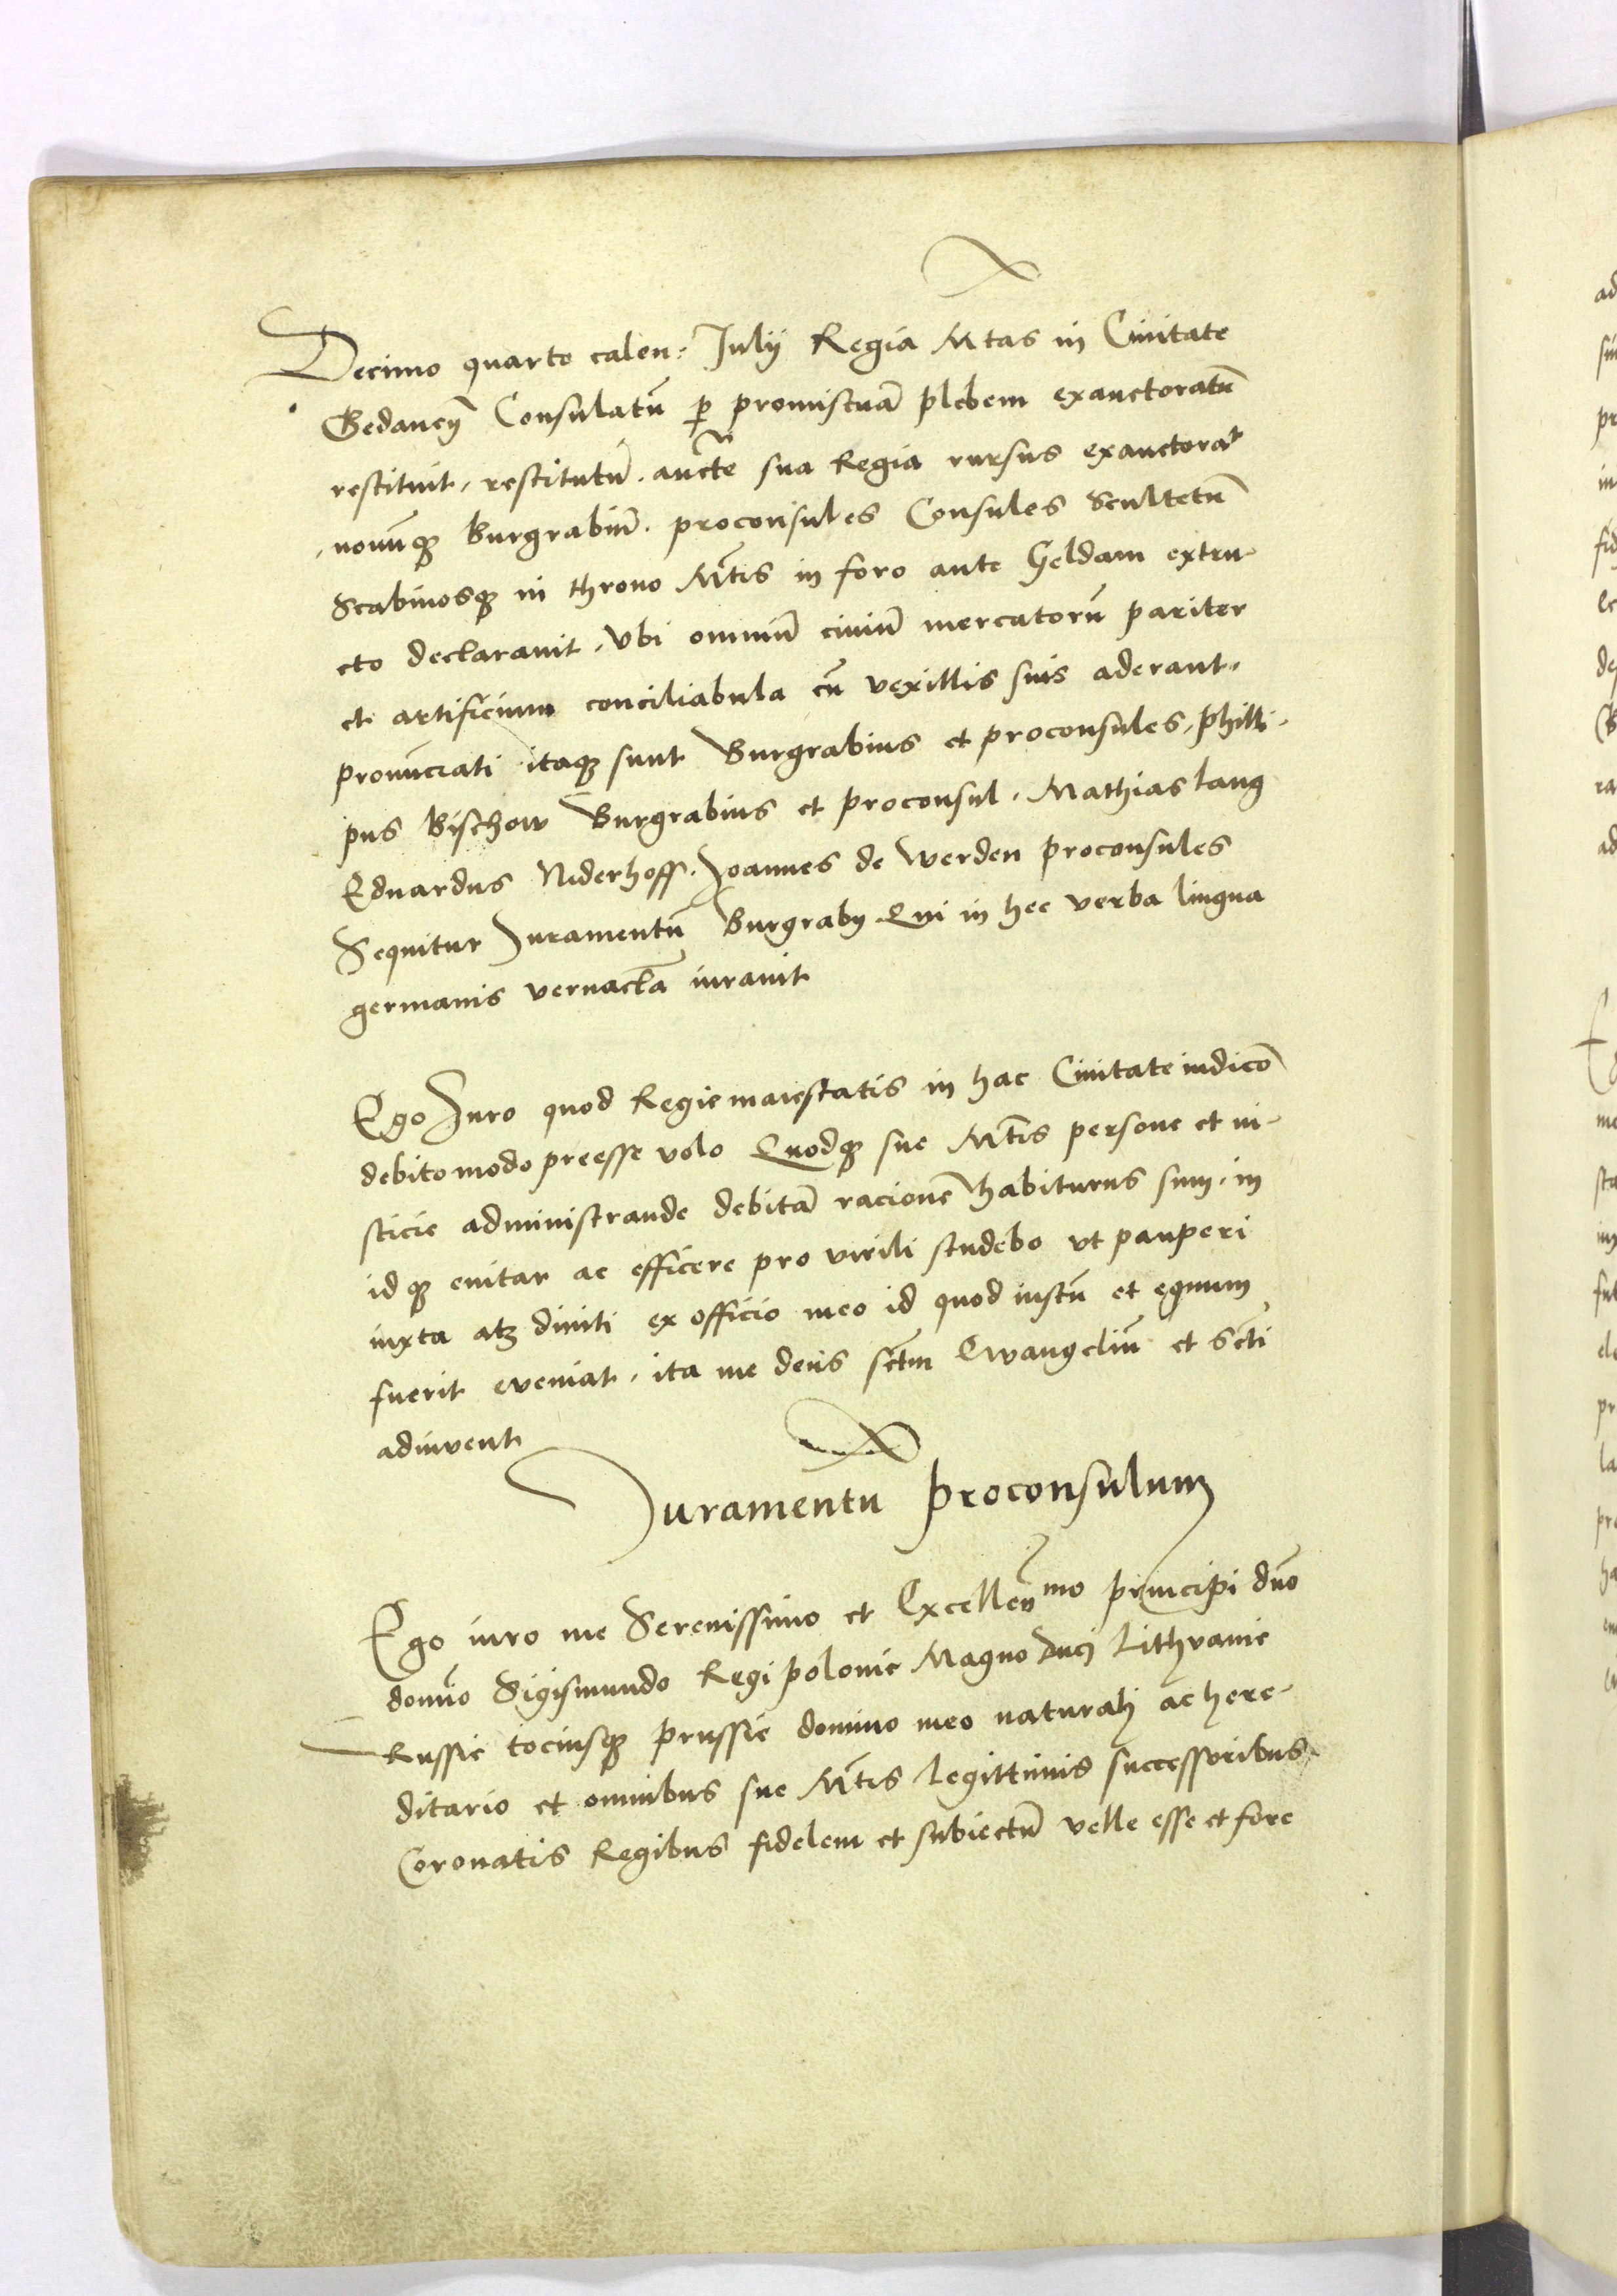 Decimo quarto calen: Julij Regia Mtas in Ciuitate
Gedaneñ Consulatū ꝑ promiscuā plebem exauctoratū
restituit, restitutū. aucte͂ sua Regia rursus exauctorat
nouūqꝫ Burgrabiū. proconsules Consules Scultetū
Scabinosqꝫ in throno Mtis in foro ante Geldam extru-
cto declarauit, Vbi omniū ciuiū mercatorū pariter
et artificium conciliabula cū vexillis suis aderant,
pronūciati itaqꝫ sunt Burgrabius et proconsules, Philli-
pus Bischow Burgrabius et proconsul, Mathias Lang
Eduardus Niderhoff, Joannes de Werden proconsules
Sequitur Juramentū Burgrabij Qui in hec verba lingua
germanis vernacla iurauit

Ego Juro quod Regie maiestatis in hac Ciuitate iudicō
debito modo preesse volo Quodqꝫ sue Mtis persone et iu-
sticie administrande debitā racionē habiturus sum, in
idqꝫ enitar ac efficere pro virili studebo vt pauperi
iuxta atqꝫ diuiti ex officio meo id quod iustū et equum
fuerit eveniat, ita me deus sctm Ewangeliū et Scti
adiuvent
Juramentū Proconsulum
Ego iuro me Serenissimo et Excelleñmo principi dño
domīo Sigismundo Regi polonie Magno Duci Lithvanie
Russie tociusqꝫ prussie domino meo naturali ac here-
ditario et omnibus sue Mtis legittimis successoribus
Coronatis Regibus fidelem et subiectū velle esse et fore